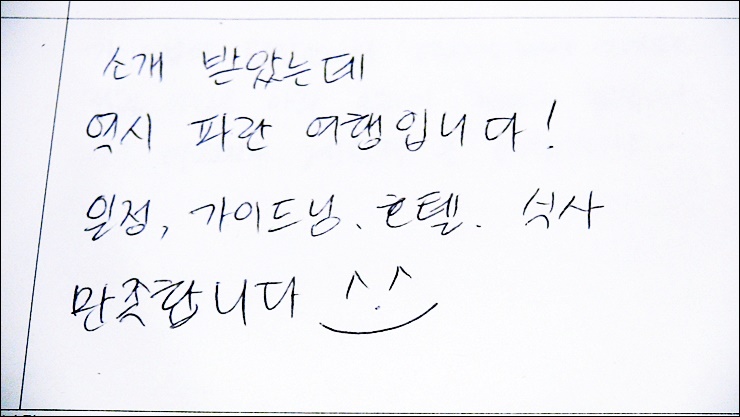 소개 받았는데
역시 파란 여행입니다!
일정, 가이드님. 호텔. 식사
만족합니다 ^.^